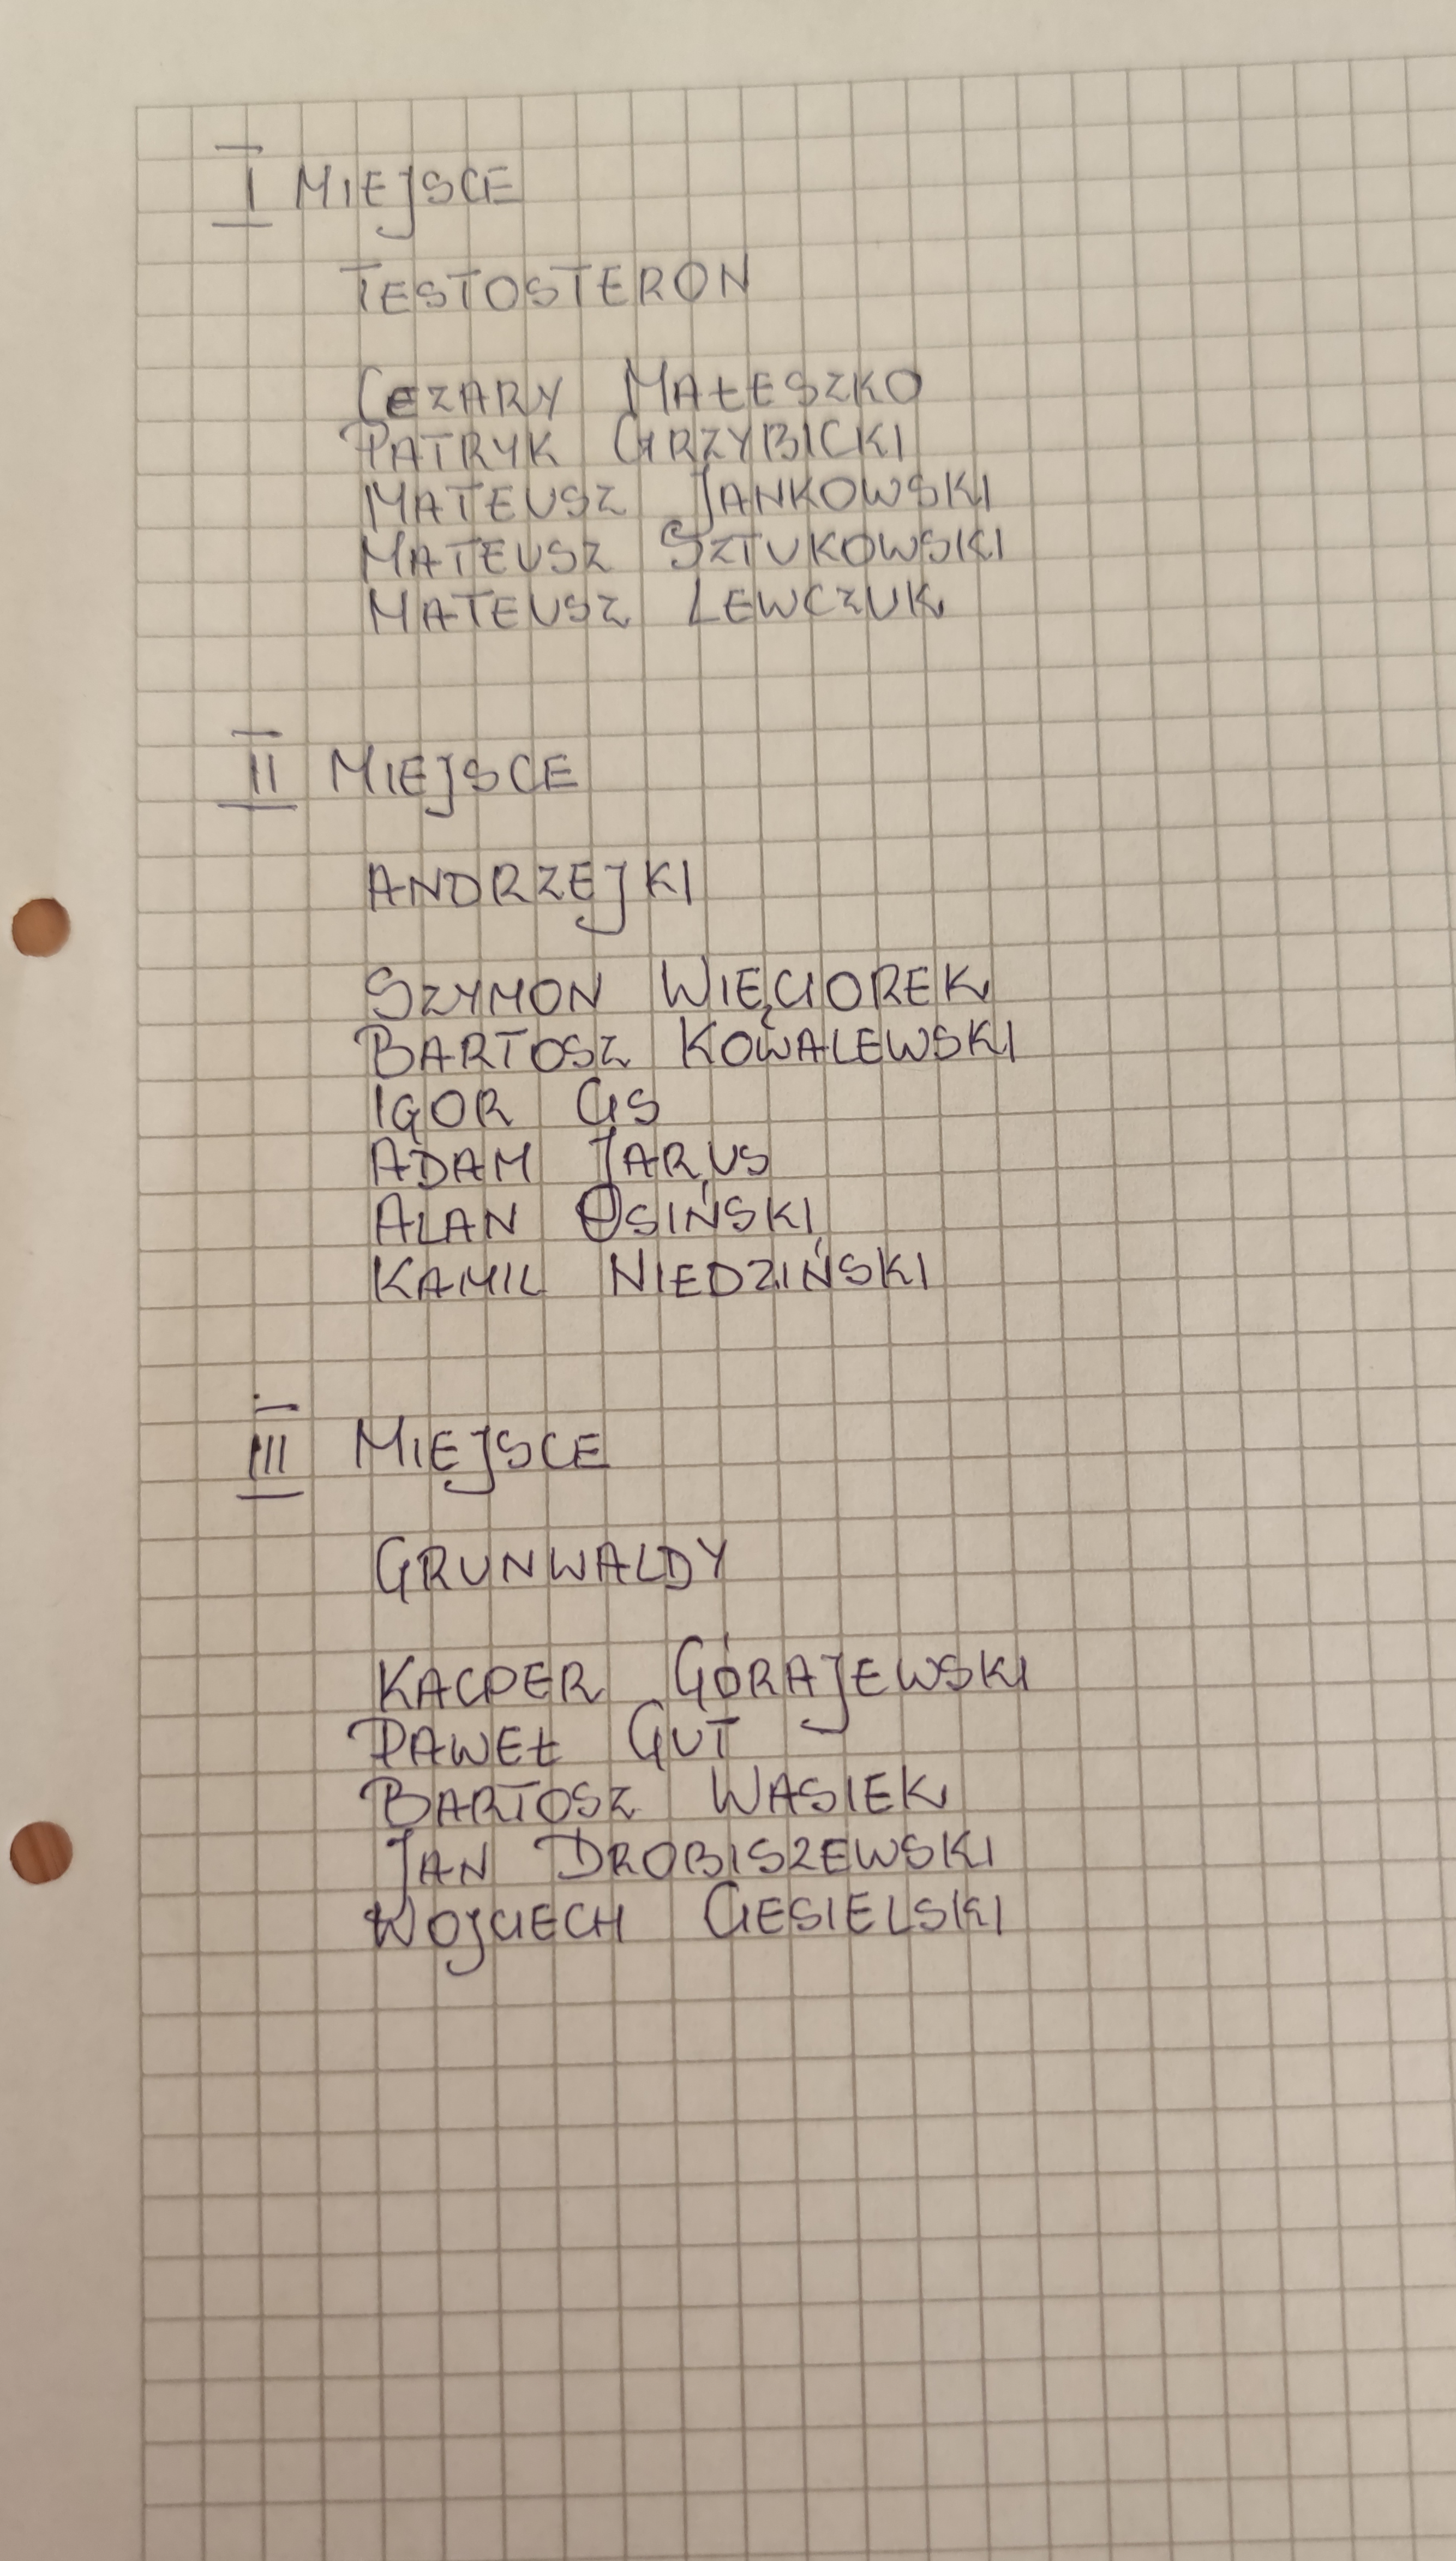 I MIEJSCE
TESTOSTERON
CEZARY MAŁESZKO
PATRYK GRZYBICKI
MATEUSZ JANKOWSKI
MATEUSZ SZTUKOWSKI
MATEUSZ LEWCZUK
II MIEJSCE
ANDRZEJKI
SZYMON WIĘCIOREK
BARTOSZ KOWALEWSKI
IGOR CIS
ADAM JARUS
ALAN OSIŃSKI
KAMIL NIEDZIŃSKI
III MIEJSCE
GRUNWALDY
KACPER GÓRAJEWSKI
PAWEŁ GUT
BARTOSZ WASIEK
JAN DROBISZEWSKI
WOJCIECH CIESIELSKI